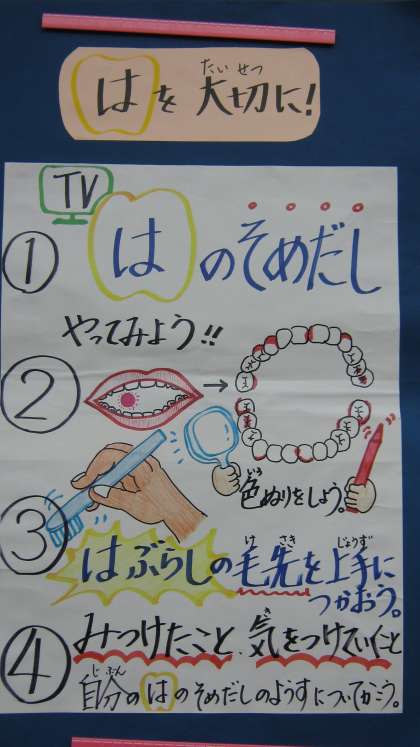 はを大切に!
たいせつ
TV
① はのそめだし
やってみよう!!
②
→
いろ
色ぬりをしよう。
③
け さき じょうず
はぶらしの毛先を上手に
つかおう。
④ みつけたこと、気をつけていくこと
き
じぶん
自分のはのそめだしのようすについてかこう。